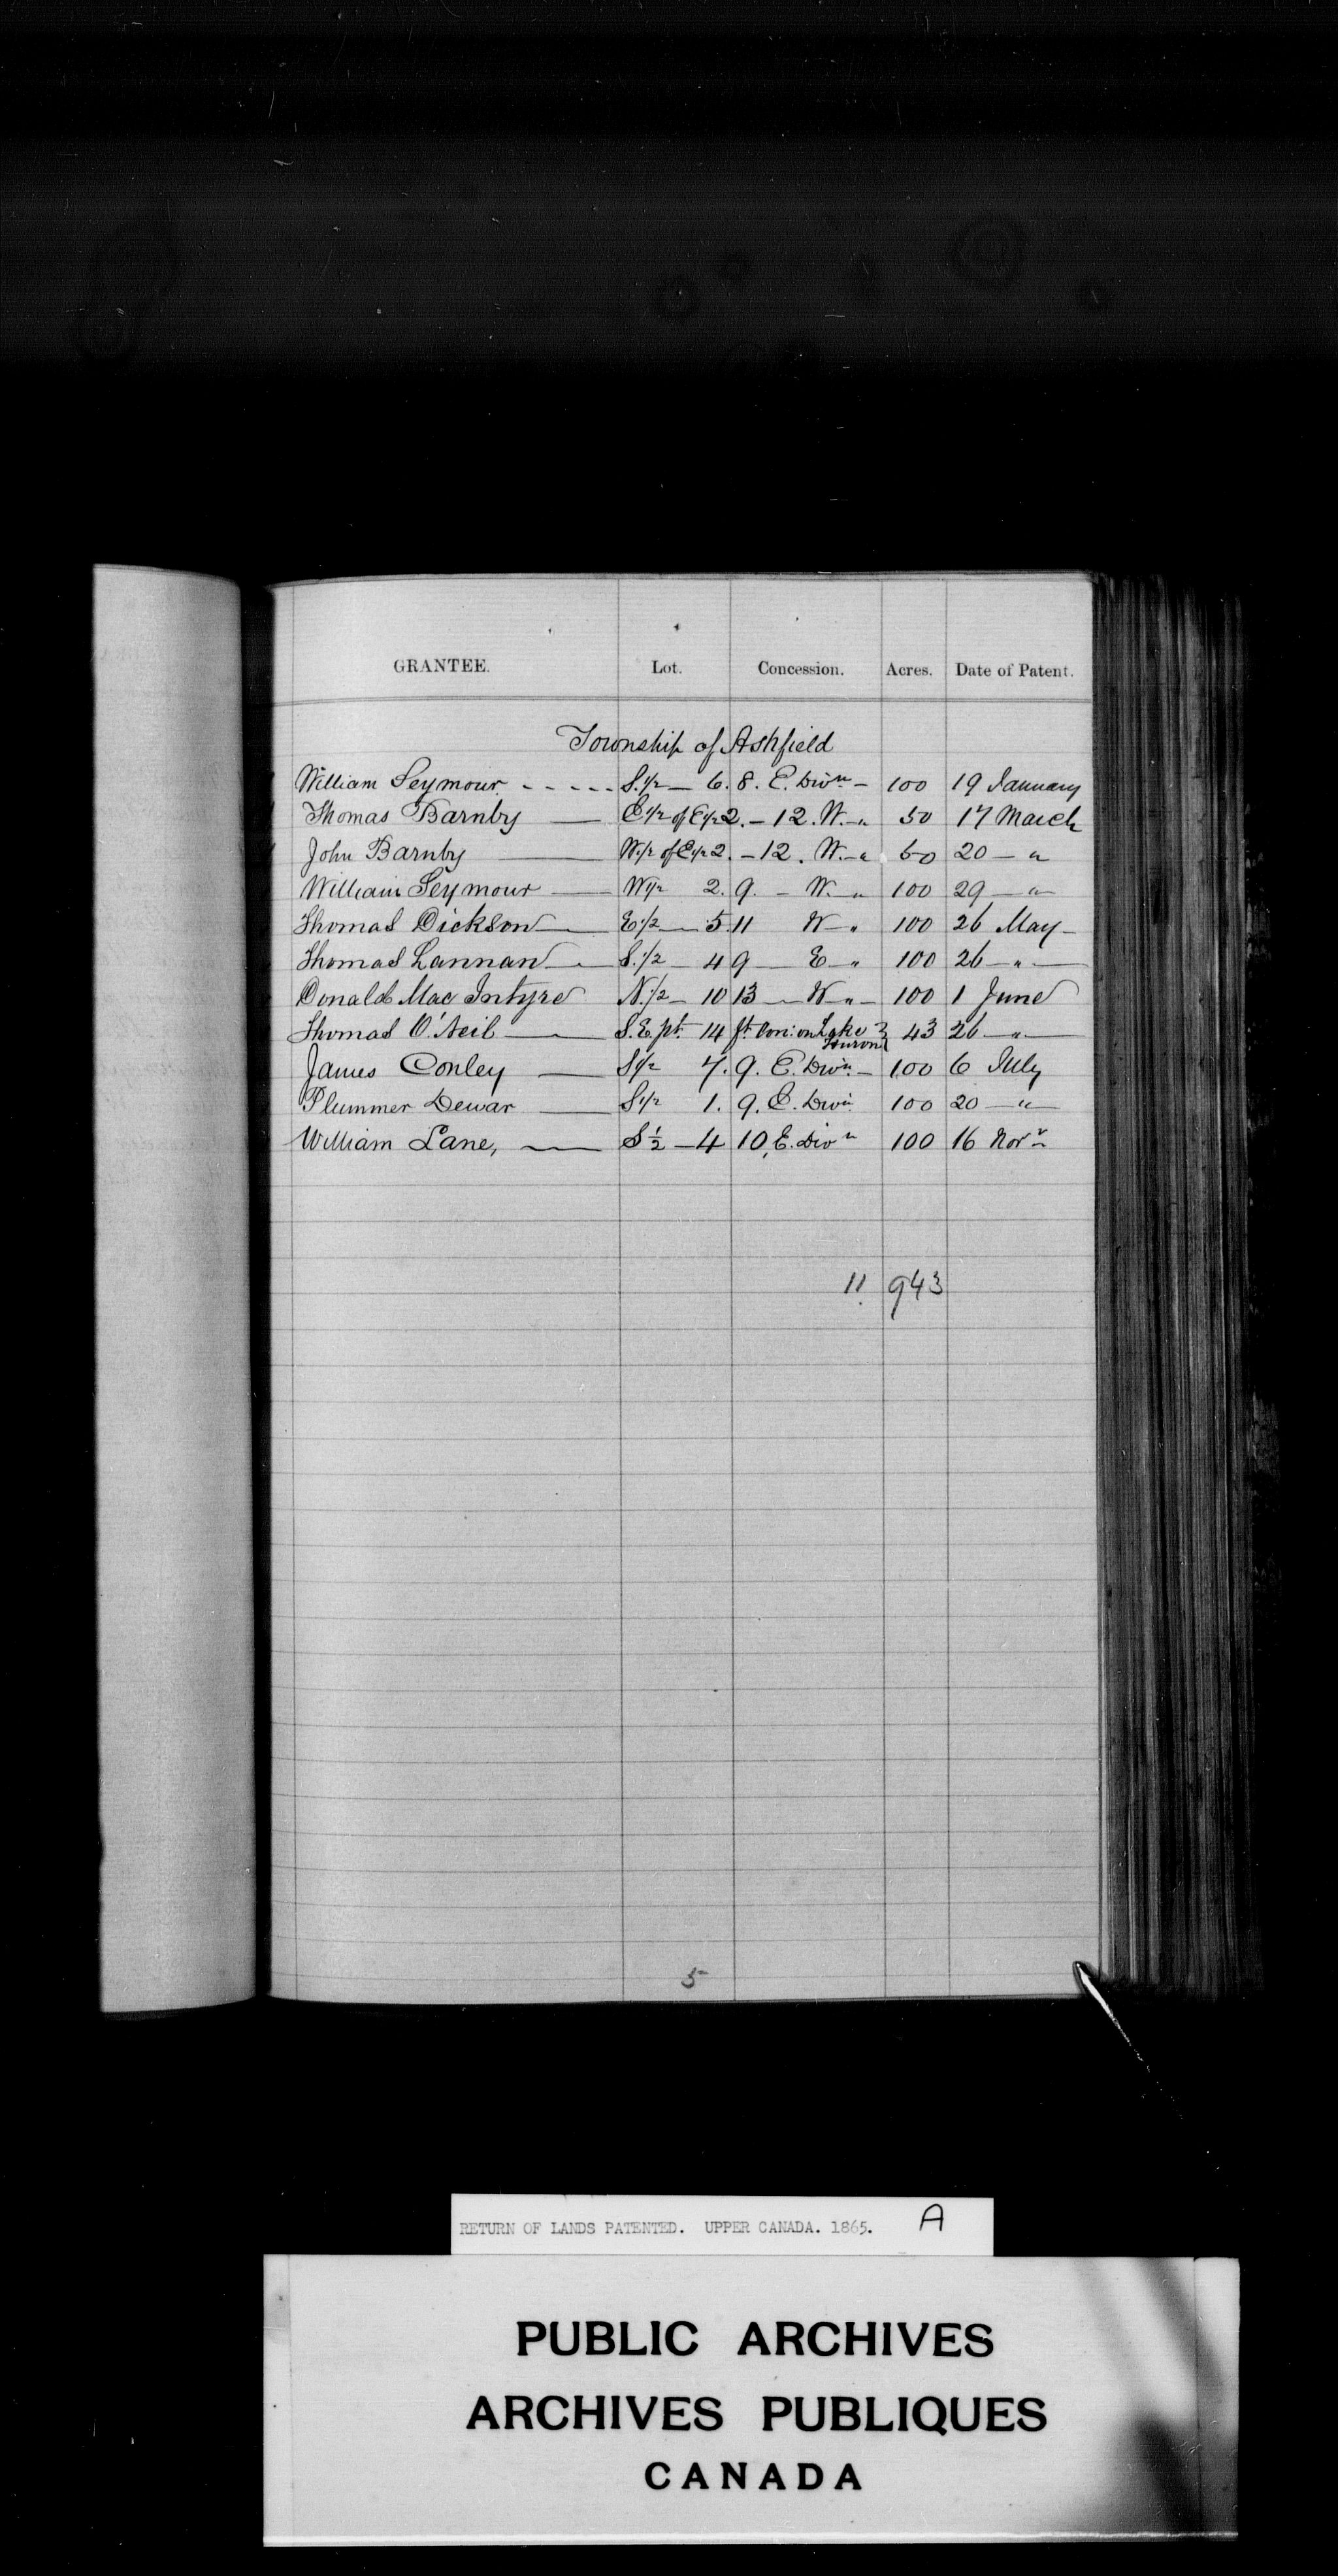 GRANTEE. Lot. Concession. Acres. Date of Patent.
Township of Ashfield
William Seymour - - - - - S. 1/2 — 6. 8. E. Divn — 100 19 January
Thomas Barnby — E 1/2 of E 1/2 2. — 12. W. — " 50 17 March
John Barnby — W. 1/2 of E 1/2 2. — 12. W. — " 50 20 — "
William Seymour — W 1/2 2. 9. — W. — " 100 29 — "
Thomas Dickson — E 1/2 — 5. 11 W — " 100 26 May —
Thomas Lannan — S. 1/2 — 4 9 — E — " 100 26 — " —
Donald Mac Intyre N. 1/2 — 10 13 — W — " — 100 1 June
Thomas O'Neil — S. E. pt. 14 ft. Con: on Lake Huron } 43 26 — " —
James Conley — S 1/2 7. 9. E. Divn — 100 6 July
Plummer Dewar — S 1/2 1. 9. E. Divn 100 20 — " —
William Lane, — S 1/2 — 4 10, E. Divn 100 16 Novr
11. 943
5
RETURN OF LANDS PATENTED. UPPER CANADA. 1865. A
PUBLIC ARCHIVES
ARCHIVES PUBLIQUES
CANADA